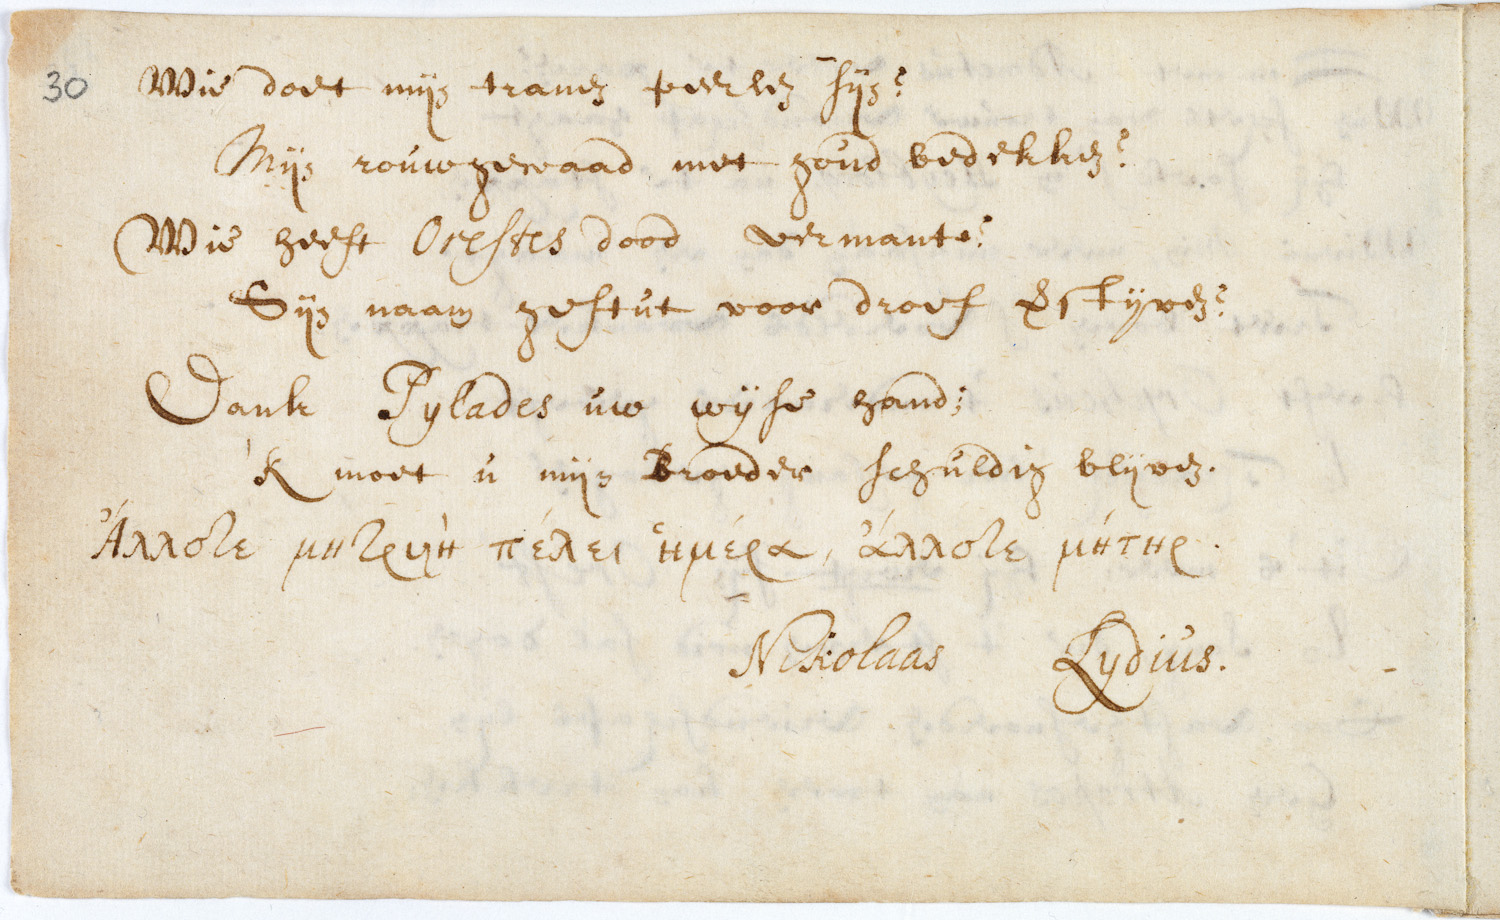 30 Wie doet mijn tranen peerlen sijn?
Mijn rouwgewaad met goud bedekken?
Wie heeft Orestes dood vermant?
Sijn naam gestut voor droef
Dank Pylades uw wijse hand;
'K moet u mijn Broeder schuldig blijven.
Ἄλλοτε μητρυιὴ πέλει ἡμέρα, ἄλλοτε μήτηρ.
Nikolaas Lydius.